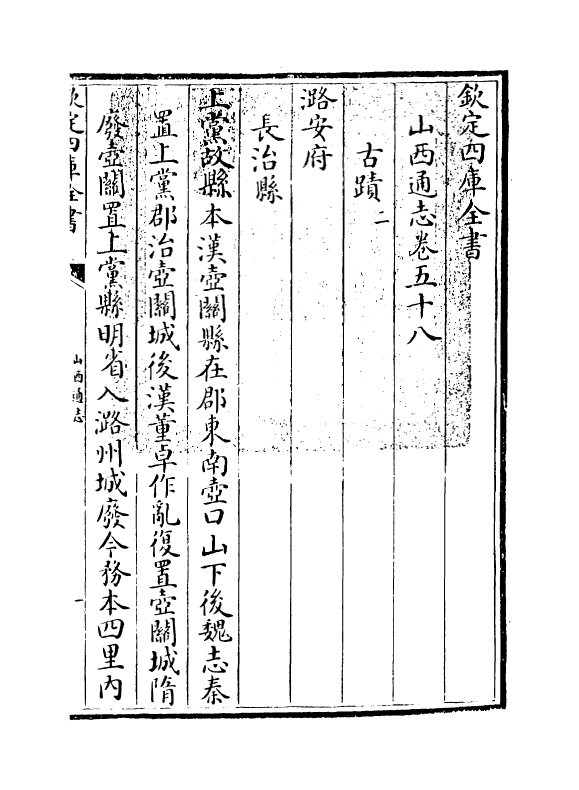 欽定四庫全書
山西通志卷五十八
古蹟二
潞安府
長治縣
上黨故縣本漢壺關縣在郡東南壺口山下後魏志秦
置上黨郡治壺關城後漢董卓作亂復置壺關城隋
廢壺關置上黨縣明省入潞州城廢今務本四里內
欽定四庫全書
山西通志
一